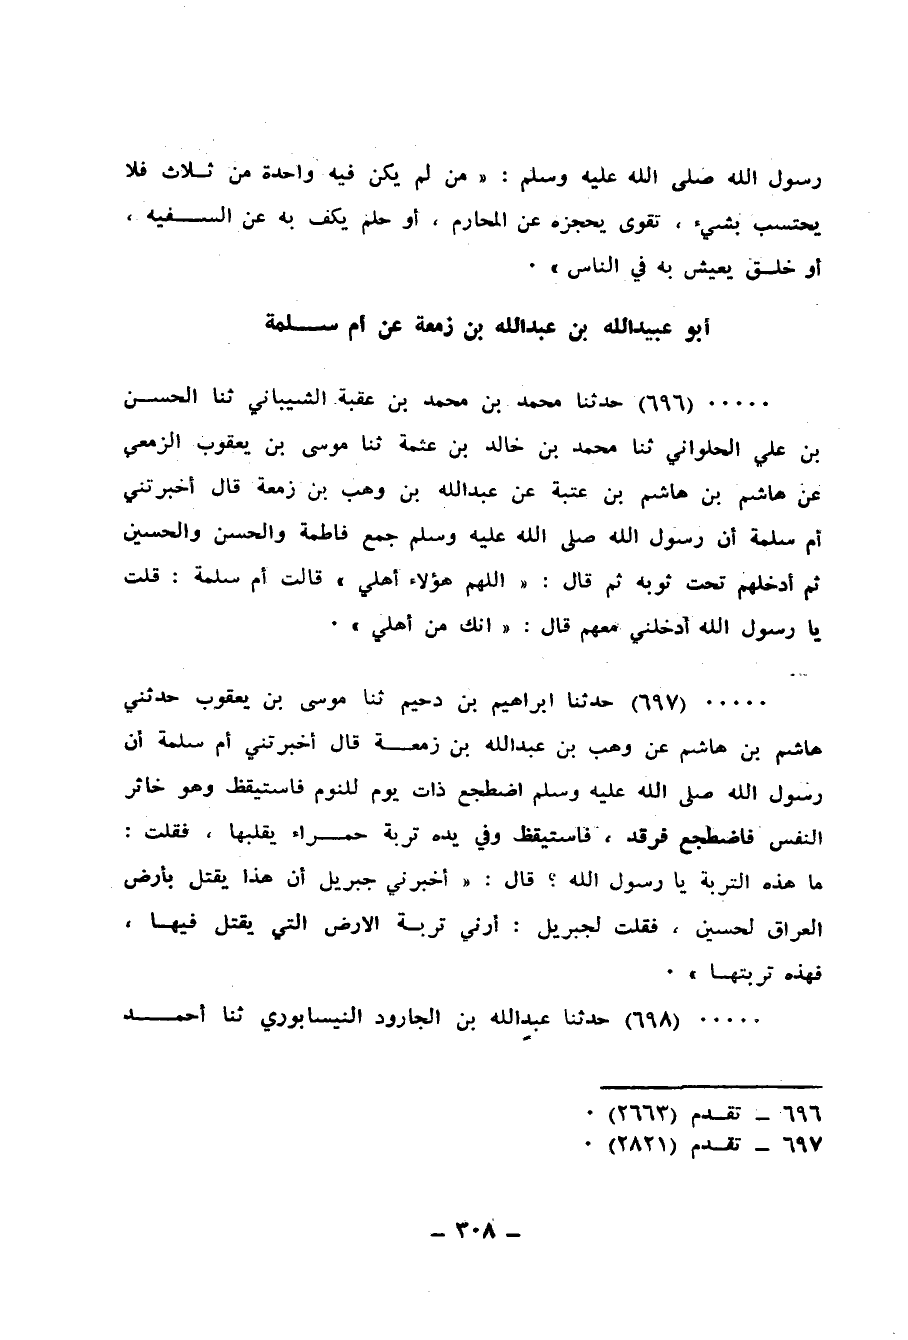 رسول الله صلى الله عليه وسلم : « من لم يكن فيه واحدة من ثلاث فلا
يحتسب بشيء ، تقوى يحجزه عن المحارم ، أو حلم يكف به عن السفيه ،
أو خلق يعيش به في الناس » ٠
أبو عبيدالله بن عبدالله بن زمعة عن أم سلمة
٠٠٠٠٠ (٦٩٦) حدثنا محمد بن محمد بن عقبة الشيباني ثنا الحسن
بن علي الحلواني ثنا محمد بن خالد بن عثمة ثنا موسى بن يعقوب الزمعي
عن هاشم بن هاشم بن عتبة عن عبدالله بن وهب بن زمعة قال أخبرتني
أم سلمة أن رسول الله صلى الله عليه وسلم جمع فاطمة والحسن والحسين
ثم أدخلهم تحت ثوبه ثم قال : « اللهم هؤلاء أهلي » قالت أم سلمة : قلت
يا رسول الله أدخلني معهم قال : « انك من أهلي » ٠
٠٠٠٠٠ (٦٩٧) حدثنا ابراهيم بن دحيم ثنا موسى بن يعقوب حدثني
هاشم بن هاشم عن وهب بن عبدالله بن زمعة قال أخبرتني أم سلمة أن
رسول الله صلى الله عليه وسلم اضطجع ذات يوم للنوم فاستيقظ وهو خاثر
النفس فاضطجع فرقد ، فاستيقظ وفي يده تربة حمراء يقلبها ، فقلت :
ما هذه التربة يا رسول الله ؟ قال : « أخبرني جبريل أن هذا يقتل بأرض
العراق لحسين ، فقلت لجبريل : أرني تربة الارض التي يقتل فيها ،
فهذه تربتها » ٠
٠٠٠٠٠ (٦٩٨) حدثنا عبدالله بن الجارود النيسابوري ثنا أحمد
٦٩٦ – تقدم (٢٦٦٣) ٠
٦٩٧ – تقدم (٢٨٢١) ٠
– ٣٠٨ –